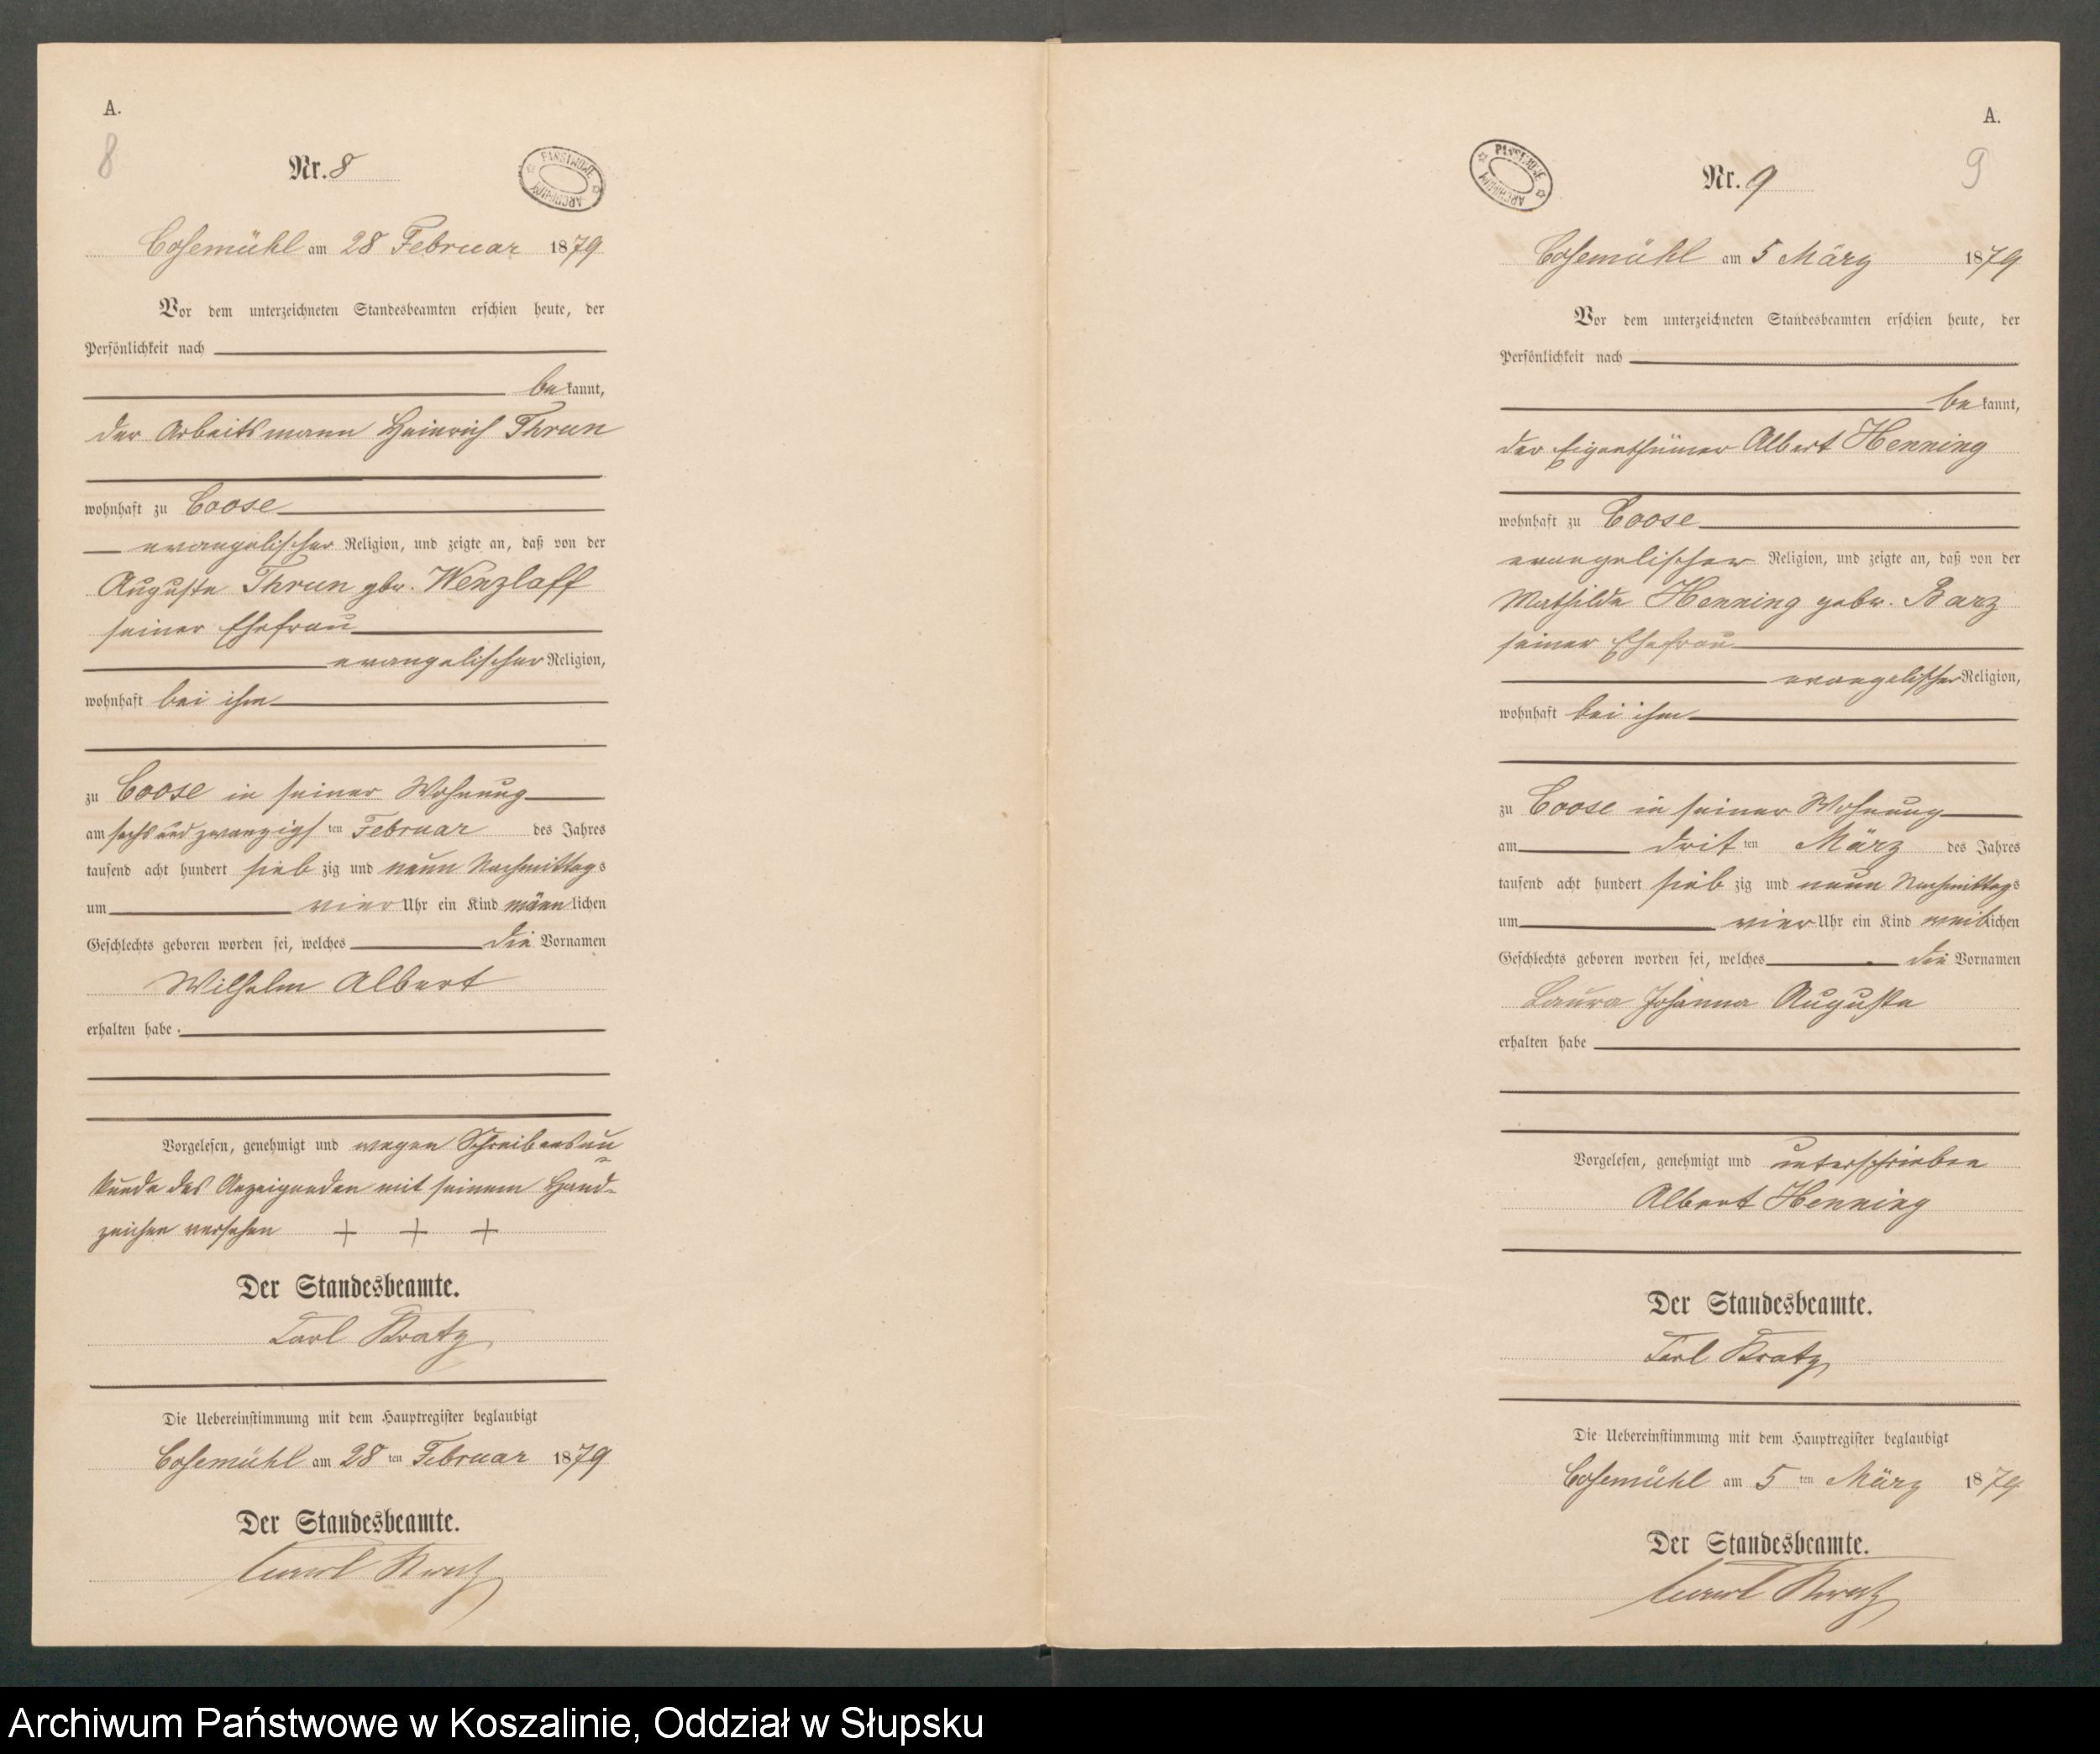 A.
8
Nr. 8
PAŃSTWOWE ARCHIWUM
Cosemühl am 28 Februar 1879
Vor dem unterzeichneten Standesbeamten erschien heute, der
Persönlichkeit nach
bekannt,
der Arbeitsmann Heinrich Thrun
wohnhaft zu Coose
evangelischer Religion, und zeigte an, daß von der
Auguste Thrun gbr. Wenzlaff
seiner Ehefrau
evangelischer Religion,
wohnhaft bei ihm
zu Coose in seiner Wohnung
am sechs und zwanzigsten Februar des Jahres
tausend acht hundert siebzig und neun Nachmittags
um vier Uhr ein Kind männlichen
Geschlechts geboren worden sei, welches die Vornamen
Wilhelm Albert
erhalten habe.
Vorgelesen, genehmigt und wegen Schreibensun
kunde des Anzeigenden mit seinem Hand-
zeichen versehen + + +
Der Standesbeamte.
Carl Kratz
Die Uebereinstimmung mit dem Hauptregister beglaubigt
Cosemühl am 28 ten Februar 1879
Der Standesbeamte.
Carl Kratz
A.
9
Nr. 9
PAŃSTWOWE ARCHIWUM
Cosemühl am 5 März 1879
Vor dem unterzeichneten Standesbeamten erschien heute, der
Persönlichkeit nach
bekannt,
der Eigenthümer Albert Henning
wohnhaft zu Coose
evangelischer Religion, und zeigte an, daß von der
Mathilde Henning gebr. Barz
seiner Ehefrau
evangelischer Religion,
wohnhaft bei ihm
zu Coose in seiner Wohnung
am dritten März des Jahres
tausend acht hundert siebzig und neun Nachmittags
um vier Uhr ein Kind weiblichen
Geschlechts geboren worden sei, welches die Vornamen
Laura Johanna Auguste
erhalten habe
Vorgelesen, genehmigt und unterschrieben
Albert Henning
Der Standesbeamte.
Carl Kratz
Die Uebereinstimmung mit dem Hauptregister beglaubigt
Cosemühl am 5 ten März 1879
Der Standesbeamte.
Carl Kratz
Archiwum Państwowe w Koszalinie, Oddział w Słupsku